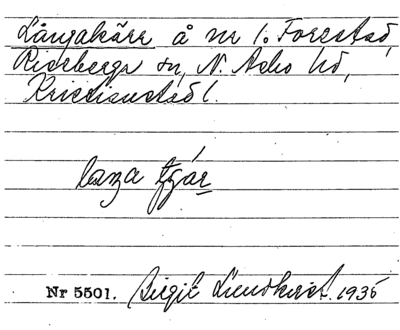 Långakärr å nr 1. Forestad,
Riseberga sn, N. Åsbo hd,
Kristianstad l.
Nr 5501. Birgit Lundkvist. 1935